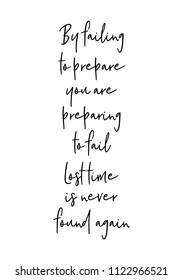 By failing
to prepare
you are
preparing
to fail
Lost time
is never
found again
shutterstock.com · 1122966521